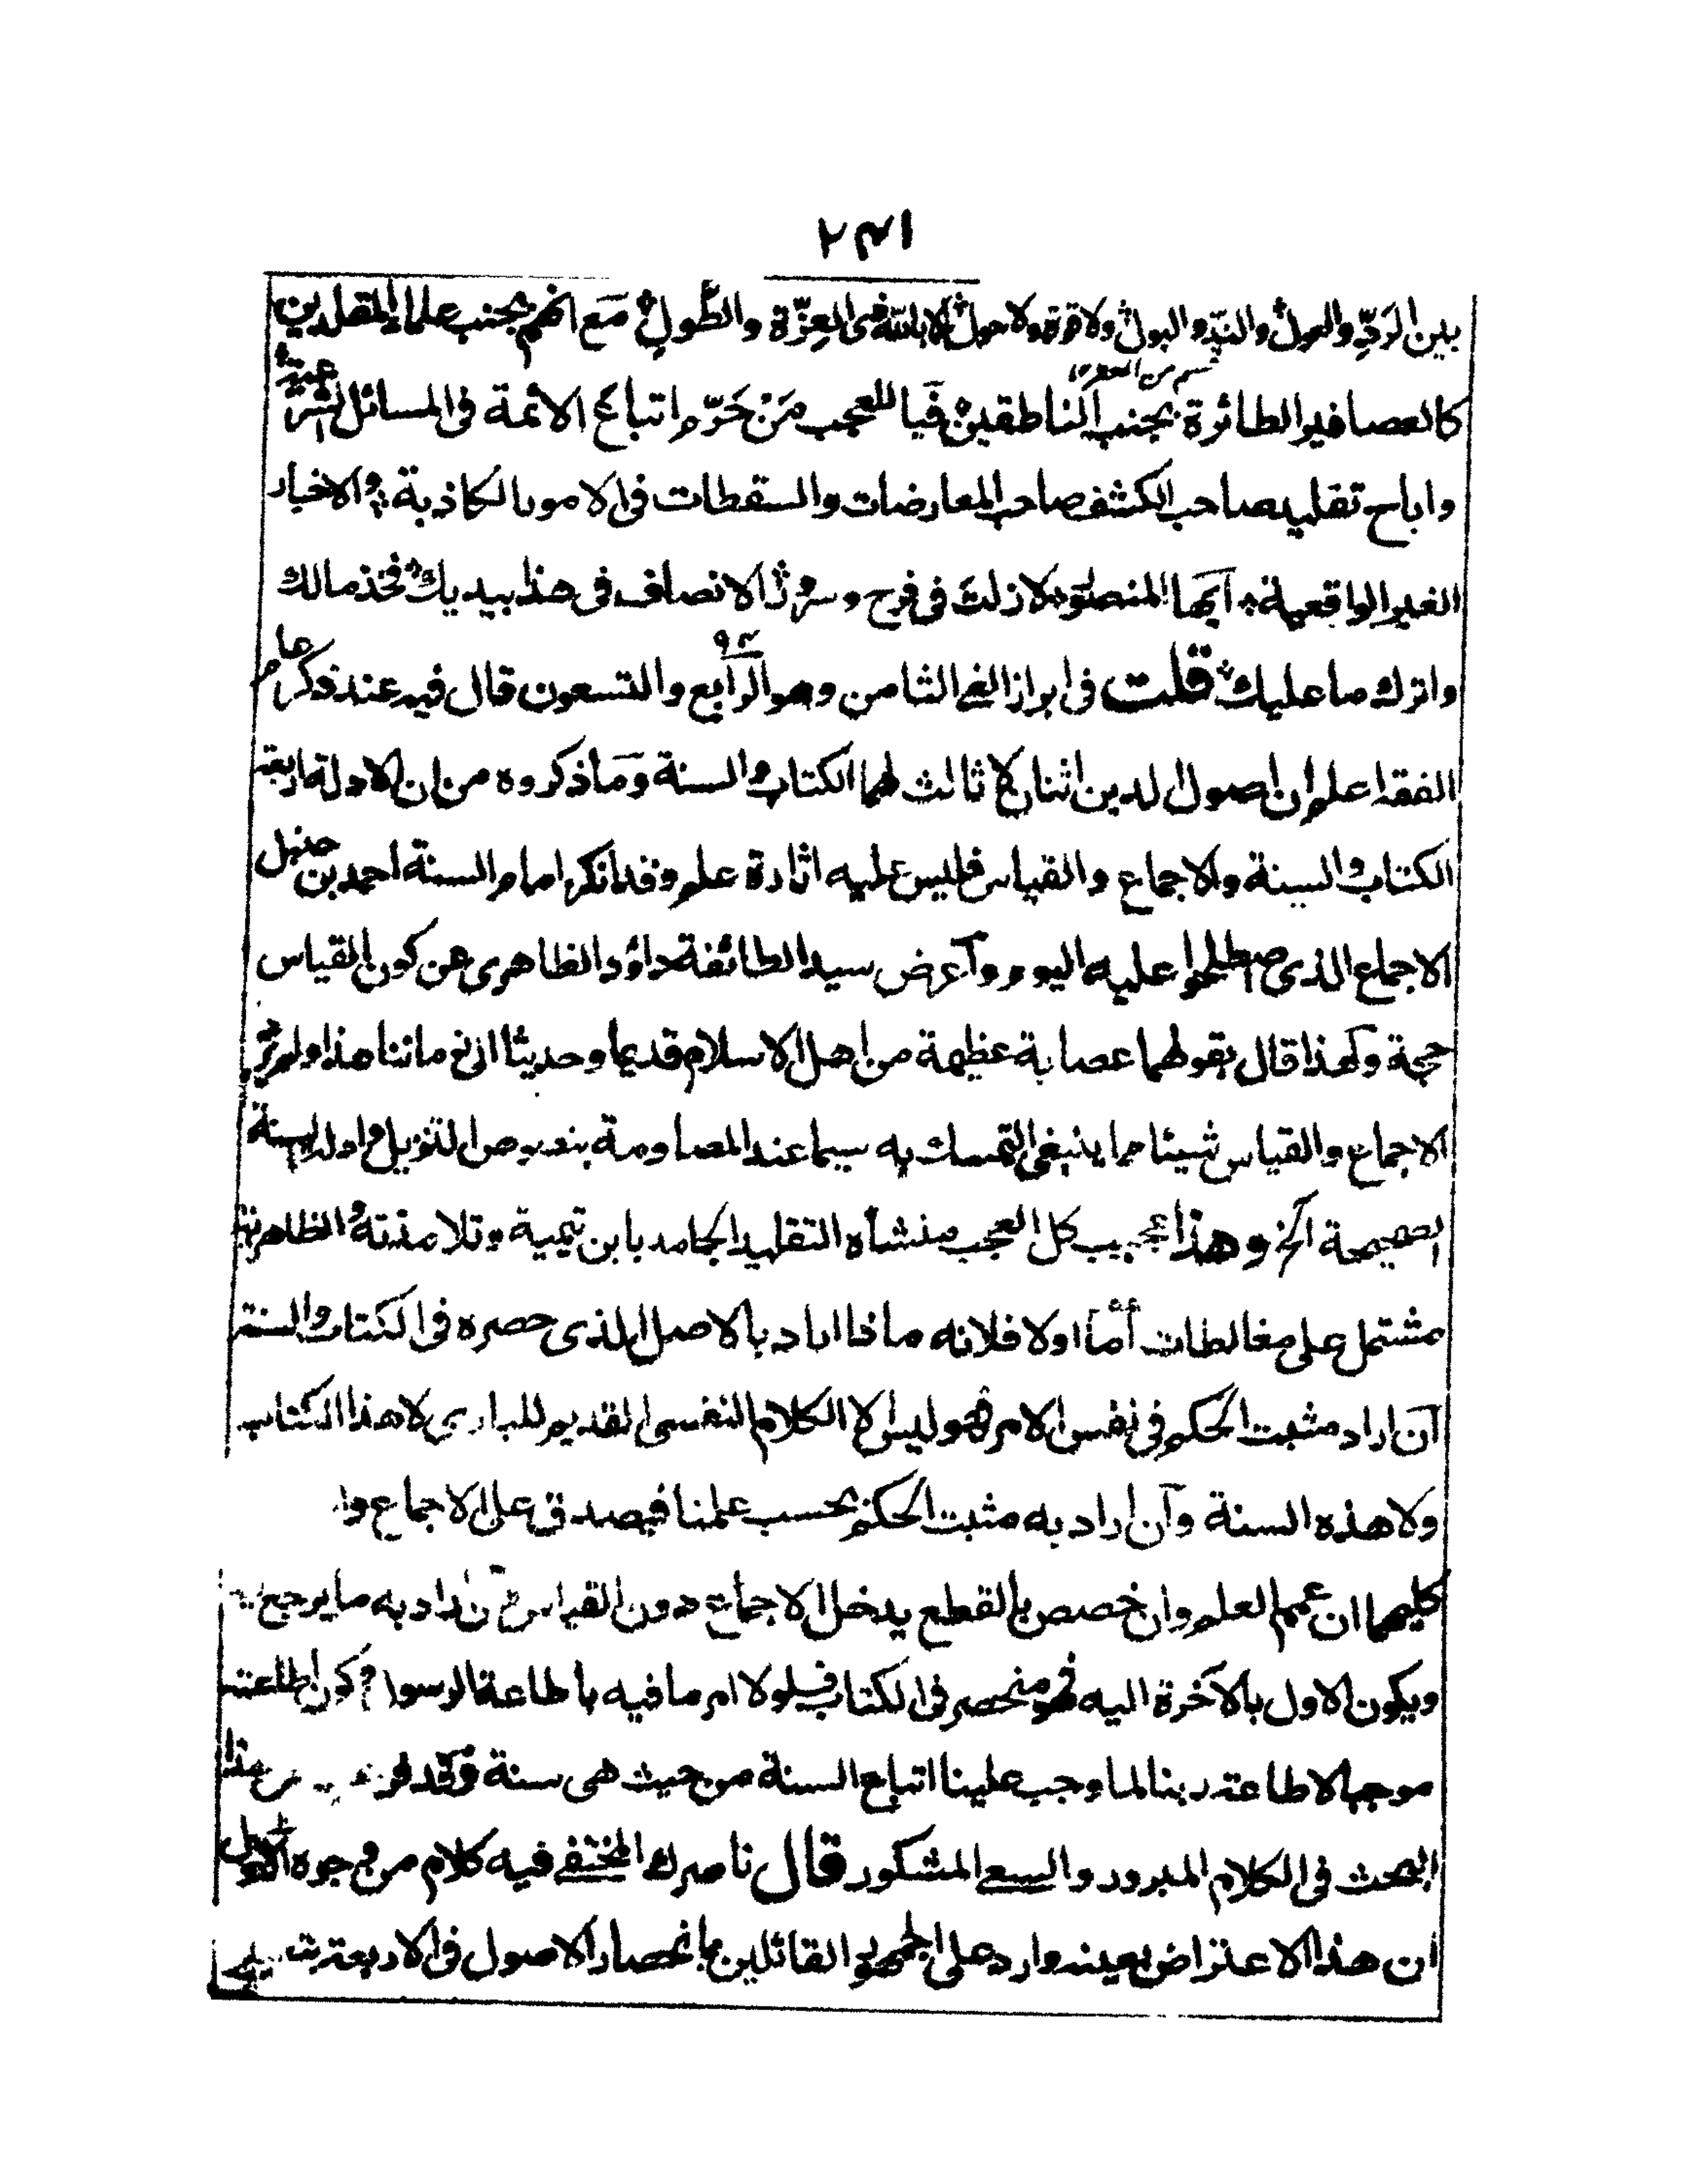 ٢٣١
بين الردّ والهول والندّ والبول ولا قوة ولا حول الا بالله ذى العزّة والطَّول مَع انهم بجنب علماء المقلدين
كالعصافير الطائرة بجنب الناطقين فيا للعجب مَنْ حَرّم اتباع الائمة فى المسائل الشرعية
واباح تقليد صاحب الكشف صاحب المعارضات والسقطات فى الامور الكاذبة والاخبار
الغير الواقعية أيها المنصور لا زلت فى فرح وسرور الانصاف فى هذا بيديك فخذ مالك
واترك ما عليك قلت فى ابراز الغى الثامن وهو الرابع والتسعون قال فيه عند ذكر علم
٩٤
الفقه اعلم ان اصول الدين اثنان لا ثالث لهما الكتاب والسنة وَمَا ذكروه من ان الادلة اربعة
الكتاب والسنة والاجماع والقياس فليس عليه اثارة علم وقد انكر امام السنة احمد بن حنبل
الاجماع الذى اصطلحوا عليه اليوم وآعرض سيد الطائفة داؤد الظاهرى عن كون القياس
حجة ولهذا قال بقولهما عصابة عظيمة من اهل الاسلام قديما وحديثا الى زماننا هذا ولم يروا
الاجماع والقياس شيئا مما ينبغى التمسك به سيما عند المصاومة بنصوص التنزيل وادلة السنة
الصحيحة آلخ وهذا عجيب كل العجب منشأه التقليد الجامد بابن تيمية وتلامذته والظاهرية
مشتمل على مغالطات أمّا اولا فلانه ماذا اراد بالاصل الذى حصره فى الكتاب والسنة
آن اراد مثبت الحكم فى نفس الامر فهو ليس الا الكلام النفسى القديم للبارى لا هذا الكتاب
ولا هذه السنة وآن اراد به مثبت الحكم بحسب علمنا فيصدق على الاجماع وا
كليهما ان عمم العلم وان خصص بالقطع يدخل الاجماع دون القياس وآن اراد به ما يرجع
ويكون الاول بالآخرة اليه فهو منحصر فى الكتاب فلولا امر ما فيه باطاعة الرسول وكون اطاعته
موجبا لاطاعة ربنا لما وجب علينا اتباع السنة من حيث هى سنة وَقد هذا
البحث فى الكلام المبرور والسعى المشكور قال ناصرك المختفى فيه كلام من وجوه الاول
ان هذا الاعتراض بعينه وارد على الجمهور القائلين بانحصار الاصول فى الاربعة